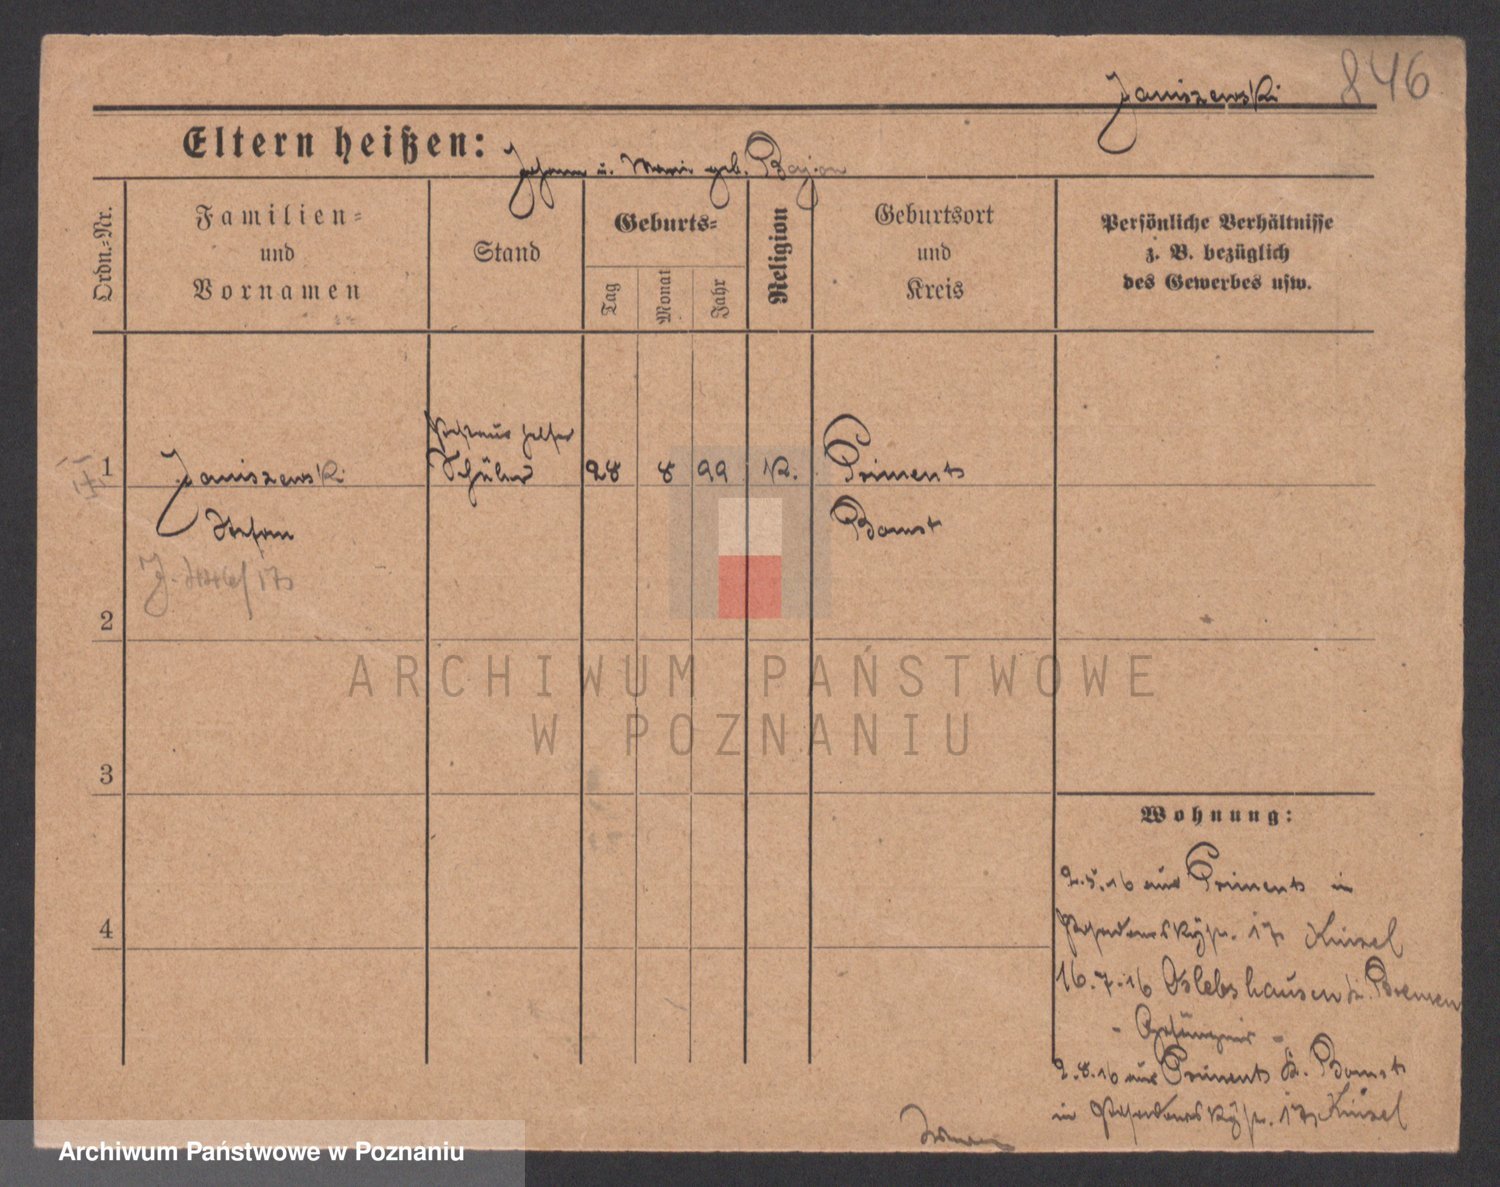 846
Janiszewski
Eltern heißen: Johann u. Marie geb. Bajon
Ordn.-Nr.
Familien-
und
Vornamen
Stand
Geburts-
Tag
Monat
Jahr
Religion
Geburtsort
und
Kreis
Persönliche Verhältnisse
z. B. bezüglich
des Gewerbes usw.
1
Janiszewski
Stefan
Schüler
28
8
99
K.
Priment
Bomst
2
3
4
Wohnung:
2.5.16 aus Priment in
17 Kinzel
16.7.16 Oslebshausen b. Bremen
- Gefängnis -
2.8.16 aus Priment Kr. Bomst
in 17 Kinzel
ARCHIWUM PAŃSTWOWE
W POZNANIU
Archiwum Państwowe w Poznaniu